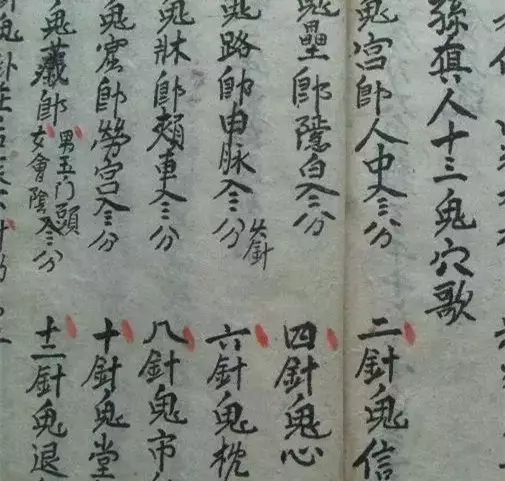 孫真人十三鬼穴歌
鬼宮即人中入三分 二針鬼信
鬼壘即隱白入二分 四針鬼心
鬼路即申脉入三分 火針 六針鬼枕
鬼牀即頰車入三分 八針鬼市
鬼窟即勞宮入三分 十針鬼堂
鬼藏即 男玉门頭
女會陰入三分 十二針鬼退